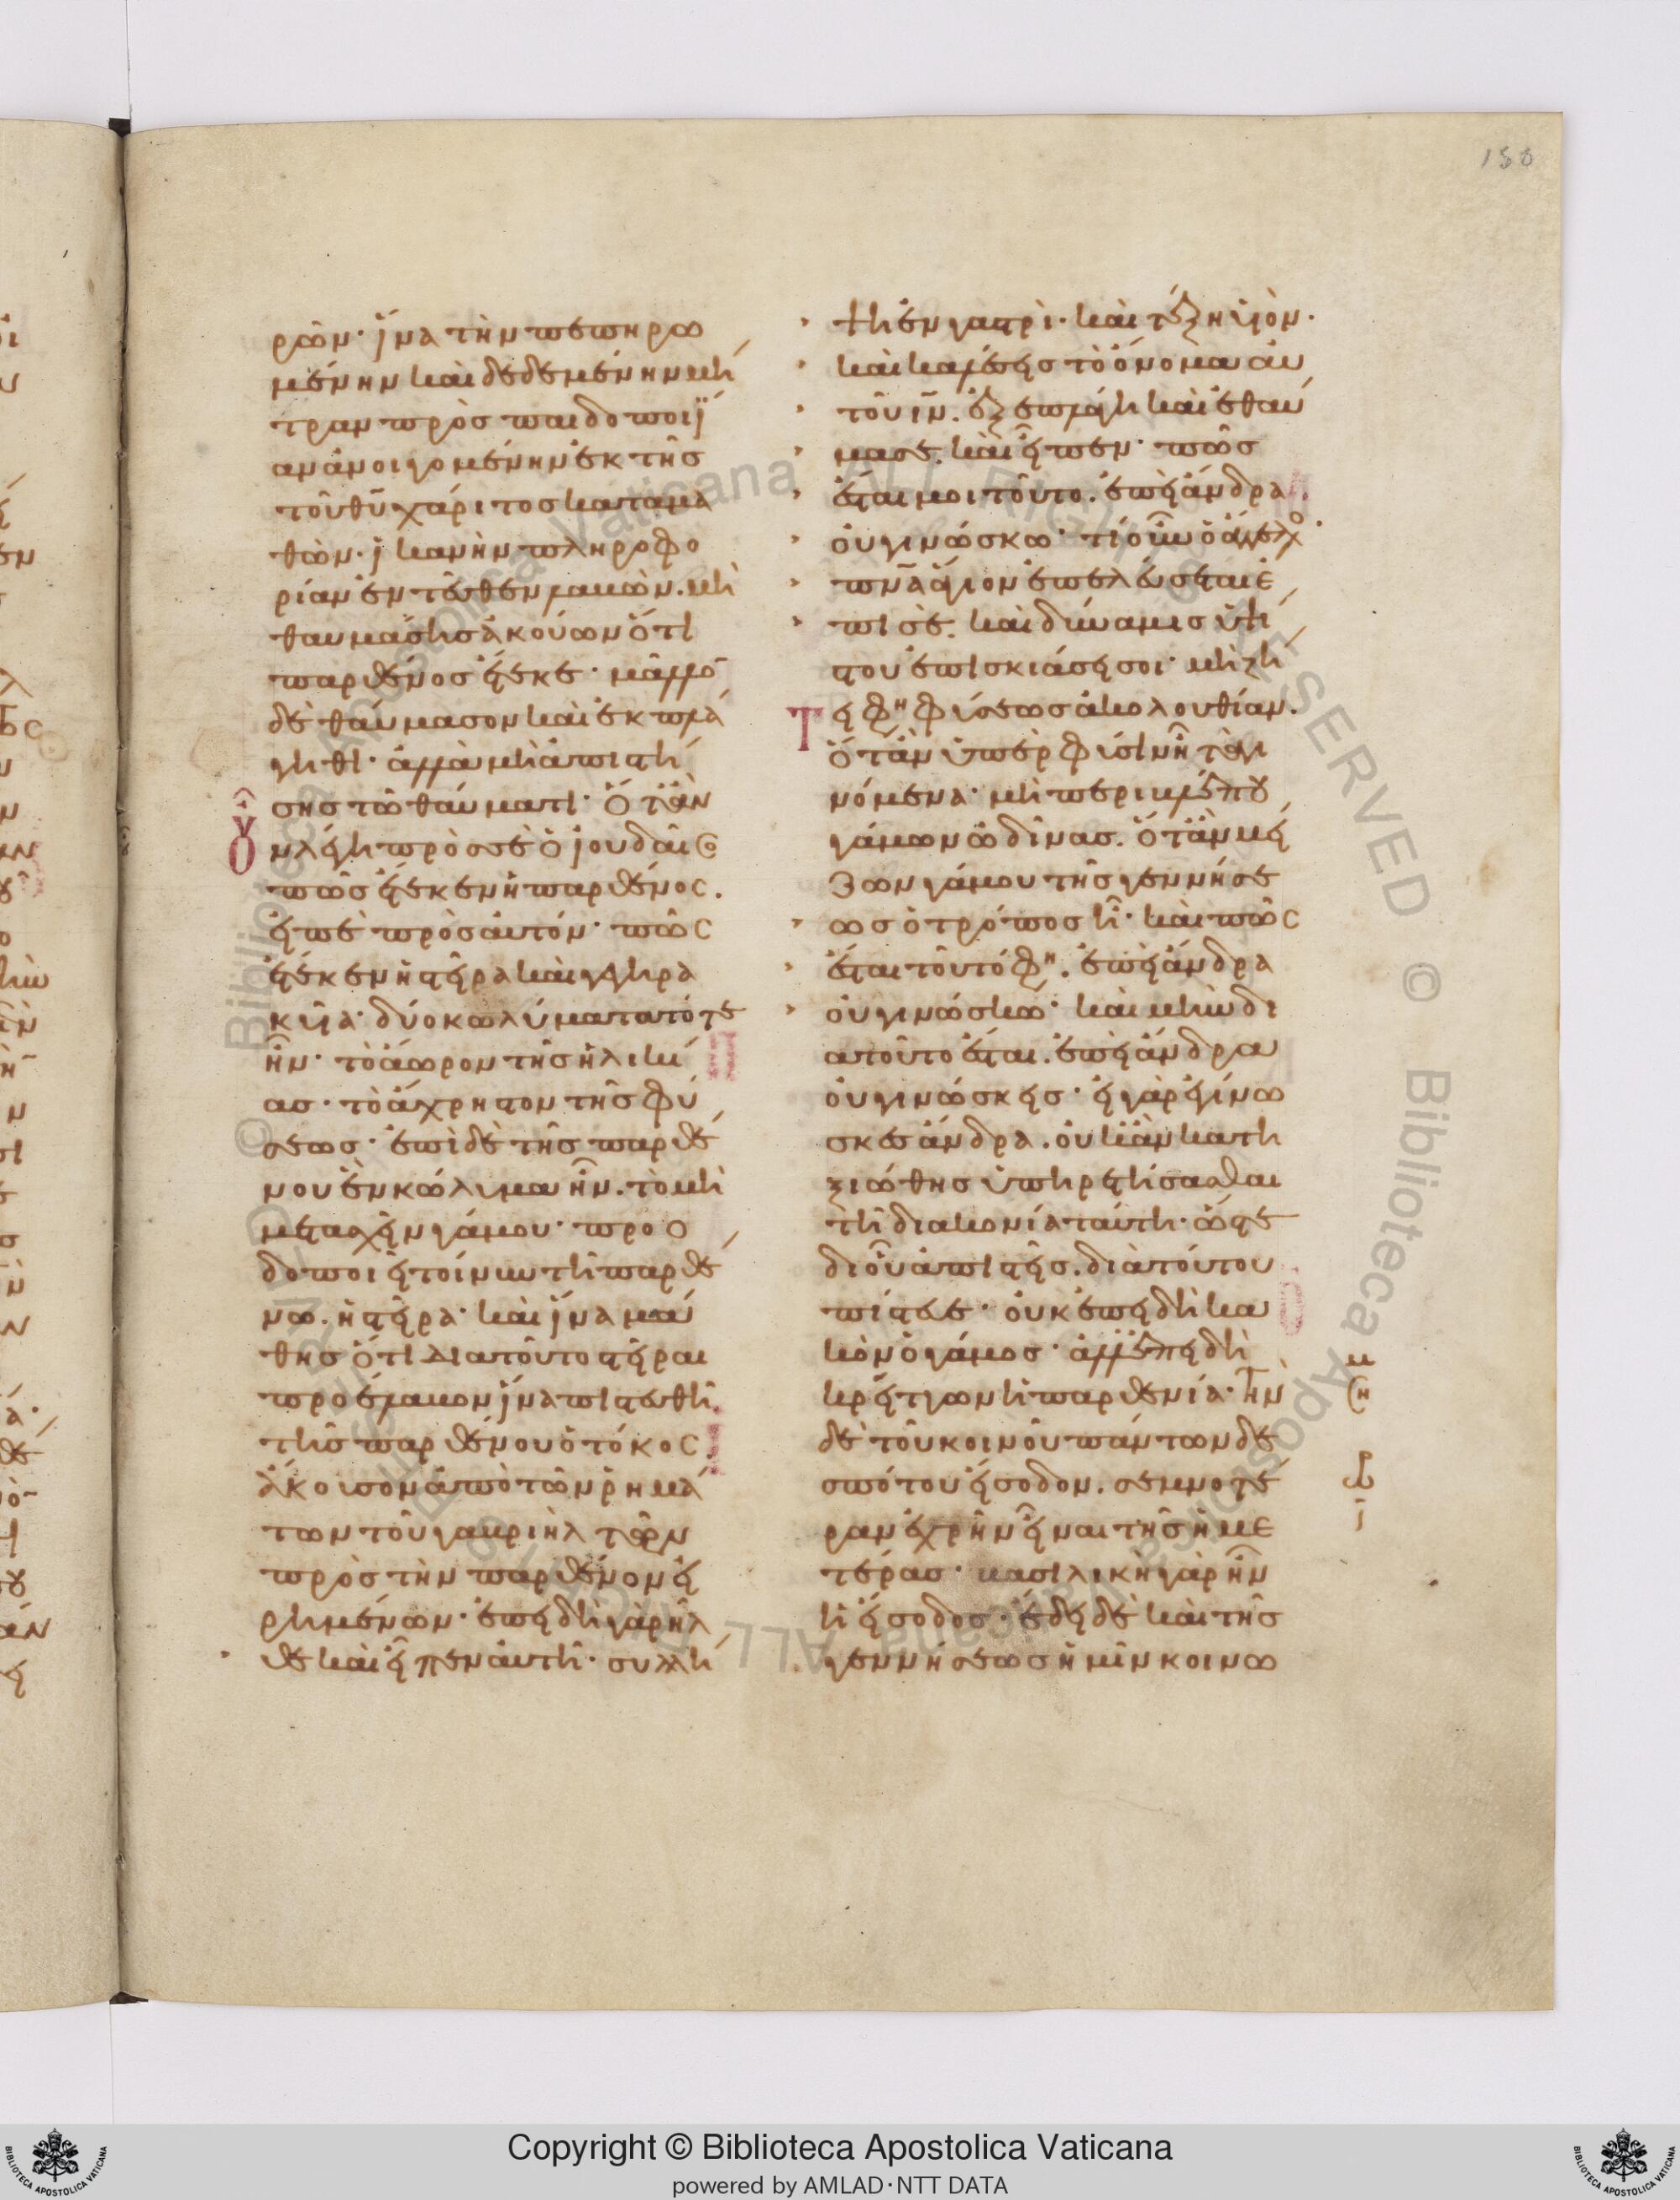 158
ρῶν· ἵνα τὴν πεπηρω
μένην καὶ δεδεμένην μή
τραν πρὸς παιδοποιΐ
αν ἀνοιγομένην ἐκ τῆς
τοῦ θῦ χάριτος καταμα
θὼν· ἱκανὴν πληροφο
ρίαν ἐντεῦθεν λαβὼν. μὴ
θαυμάσης ἀκούων ὅτι
παρθένος ἔτεκε· μᾶλλο̄
δὲ θαύμασον καὶ ἐκπλά
γηθι· ἀλλὰ μὴ ἀπιστή
σης τῶ θαύματι· Ὅταν
οὖν λέγη πρὸς σὲ ὁ ἰουδαῖος
πῶς ἔτεκεν ἡ παρθένος.
εἰπὲ πρὸς αὐτόν· πῶς
ἔτεκεν ἡ στεῖρα καὶ γηρα
κυῖα· δύο κωλύματα τότε
ἦν· τὸ ἄωρον τῆς ἡλικί
ας· τὸ ἄχρηστον τῆς φύ
σεως· ἐπὶ δὲ τῆς παρθέ
νου ἓν κώλυμα ἦν. τὸ μὴ
μετασχεῖν γάμου· προο
δοποιεῖ τοίνυν τῆ παρθέ
νω. ἡ στεῖρα· καὶ ἵνα μά
θης ὅτι διατοῦτο στεῖραι
προέλαβον ἵνα πιστευθῆ
τῆς παρθένου ὁ τόκος.
ἄκουσον ἀπὸ τῶν ρημά
των τοῦ γαβριὴλ τῶν
πρὸς τὴν παρθένον εἰ
ρημένων· ἐπειδὴ γὰρ ἦλ
θε καὶ εἶπεν αὐτῆ· συλλή
ψη ἐν γαστρὶ· καὶ τέξη υἱὸν·
καὶ καλέσεις τὸ ὄνομα αὐ
τοῦ ιν̄. ἐξεπλάγη καὶ ἐθαύ
μασε. καὶ εἶπεν· πῶς
ἔσται μοι τοῦτο. ἐπεὶ ἄνδρα
οὐ γινώσκω· τί οὖν ὁ ἄγγελο·
πν̄α ἅγιον ἐπελεύσεται ἐ
πὶ σὲ. καὶ δύναμις ὑψί
στου ἐπισκιάσει σοι· μὴ ζή
τει φη φύσεως ἀκολουθίαν.
ὅταν ὑπὲρ φύσιν ἦ τὰ γι
νόμενα· μὴ περιβλέπου
γάμων ὠδῖνας. ὅταν μεί
ζων γάμου τῆς γεννήσε
ως ὁ τρόπος ἦ· καὶ πῶς
ἔσται τοῦτό φη. ἐπεὶ ἄνδρα
οὐ γινώσκω· καὶ μὴν δι
ατοῦτο ἔσται. ἐπεὶ ἄνδρα
οὐ γινώσκεις· εἰ γὰρ ἐγίνω
σκες ἄνδρα. οὐκ ἂν κατη
ξιώθης ὑπηρετήσασθαι
τῆ διακονία ταύτη· ὥστε
δι οὗ ἀπιστεῖς. διὰ τούτου
πίστευε· οὐκ ἐπειδὴ κα
κὸν ὁ γάμος· ἀλλ' ἐπειδὴ
κρεῖττων ἡ παρθενία· τὴν
δὲ τοῦ κοινοῦ πάντων δε
σπότου εἴσοδον. σεμνοτέ
ραν ἐχρῆν εἶναι τῆς ἡμε
τέρας· βασιλικὴ γὰρ ἦν
ἡ εἴσοδος· ἔδει δὲ καὶ τῆς
γεννήσεως ἡμῖν κοινω
Copyright © Biblioteca Apostolica Vaticana
powered by AMLAD·NTT DATA